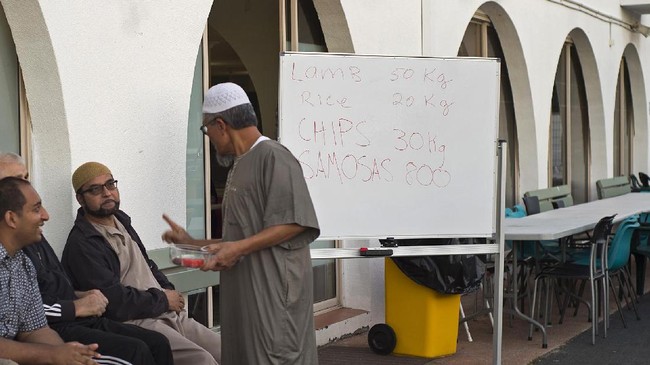 Lamb 50 Kg
Rice 20 Kg
CHIPS 30 Kg
SAMOSAS 800